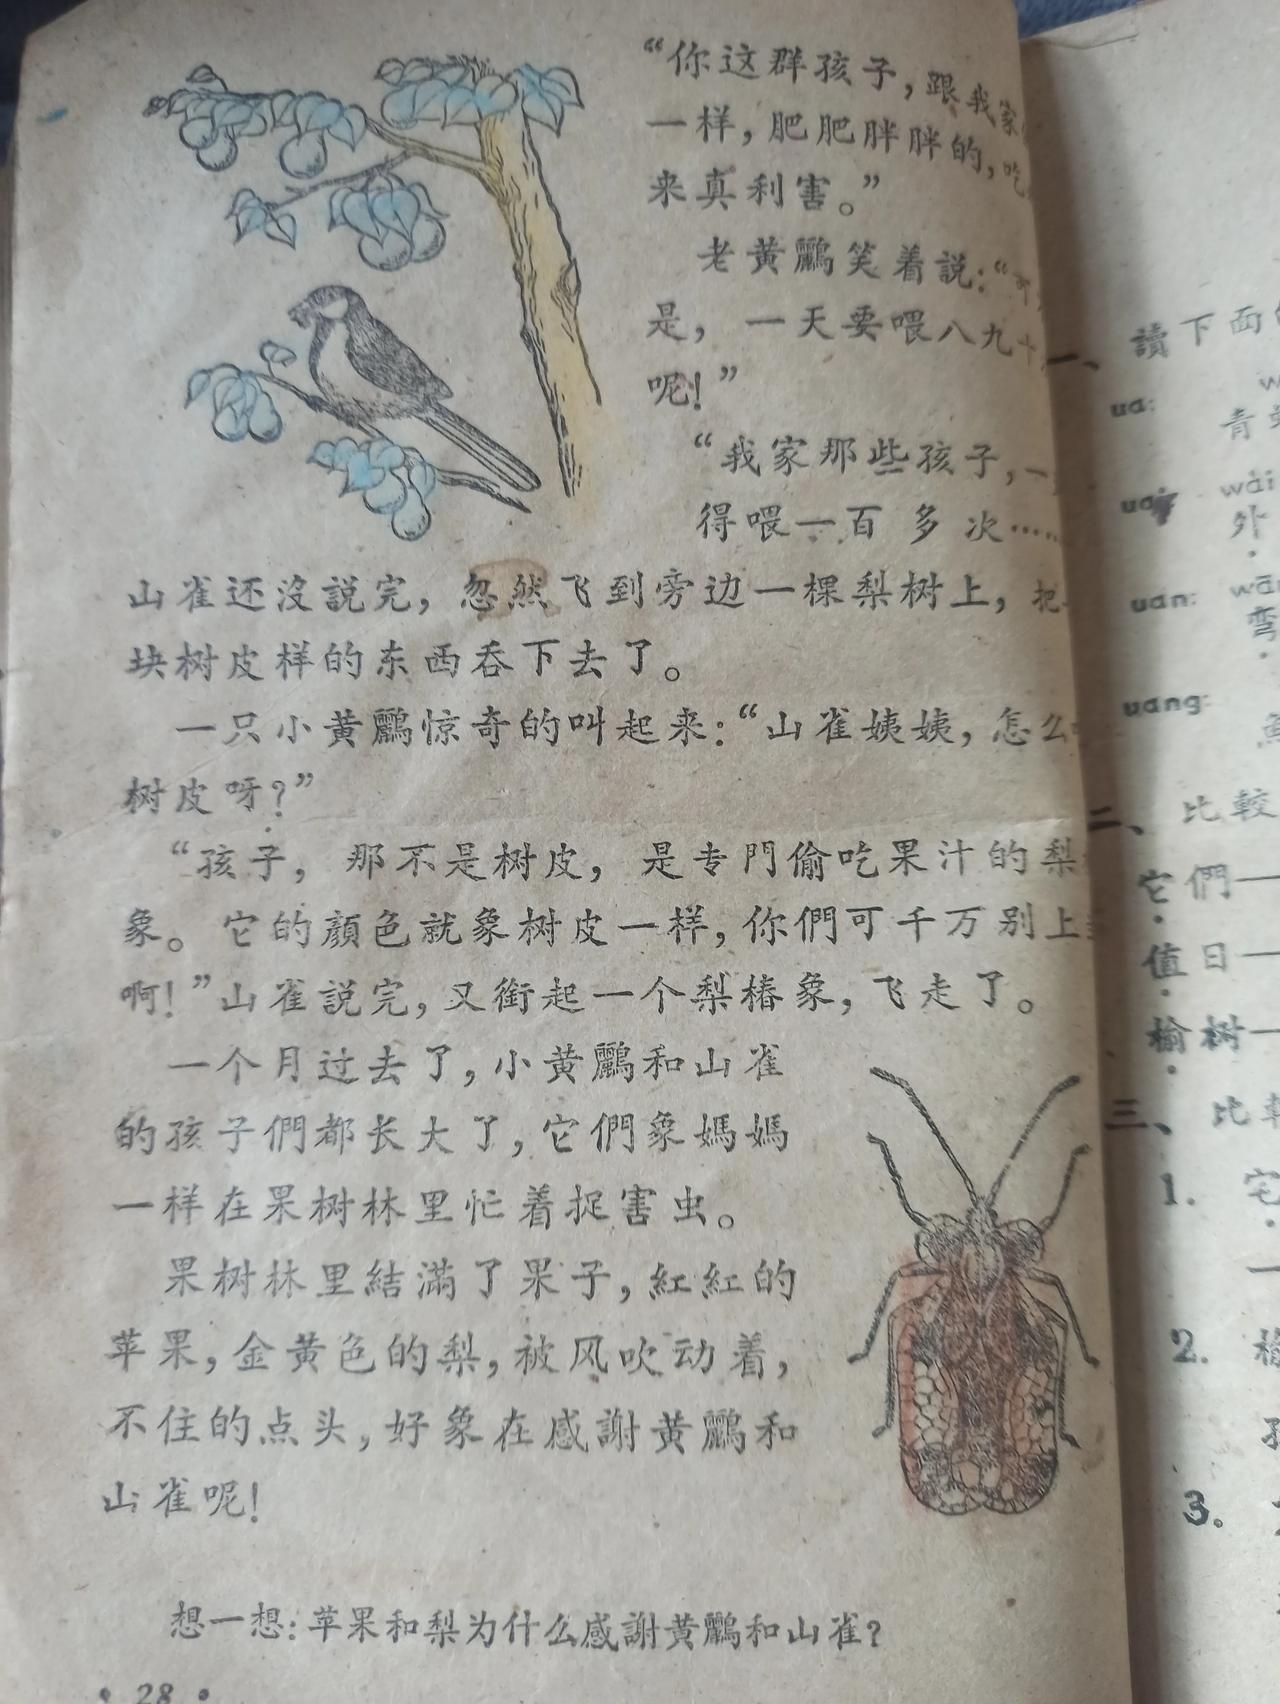 “你这群孩子，跟我家
一样，肥肥胖胖的，吃
来真利害。”
老黄鸝笑着說：“
是，一天要喂八九十
呢！”
“我家那些孩子，一
得喂一百多次……
山雀还沒說完，忽然飞到旁边一棵梨树上，把
块树皮样的东西吞下去了。
一只小黄鸝惊奇的叫起来：“山雀姨姨，怎么
树皮呀？”
“孩子，那不是树皮，是专門偷吃果汁的梨
象。它的顏色就象树皮一样，你們可千万别上
啊！”山雀說完，又銜起一个梨椿象，飞走了。
一个月过去了，小黄鸝和山雀
的孩子們都长大了，它們象媽媽
一样在果树林里忙着捉害虫。
果树林里結滿了果子，紅紅的
苹果，金黄色的梨，被风吹动着，
不住的点头，好象在感謝黄鸝和
山雀呢！
想一想：苹果和梨为什么感謝黄鸝和山雀？
• 28 •
一、讀下面
ua:
青
uai: wài
外
uan:
弯
uang:
二、比較
它們—
值日—
榆树—
三、比較
1.
2.
3.